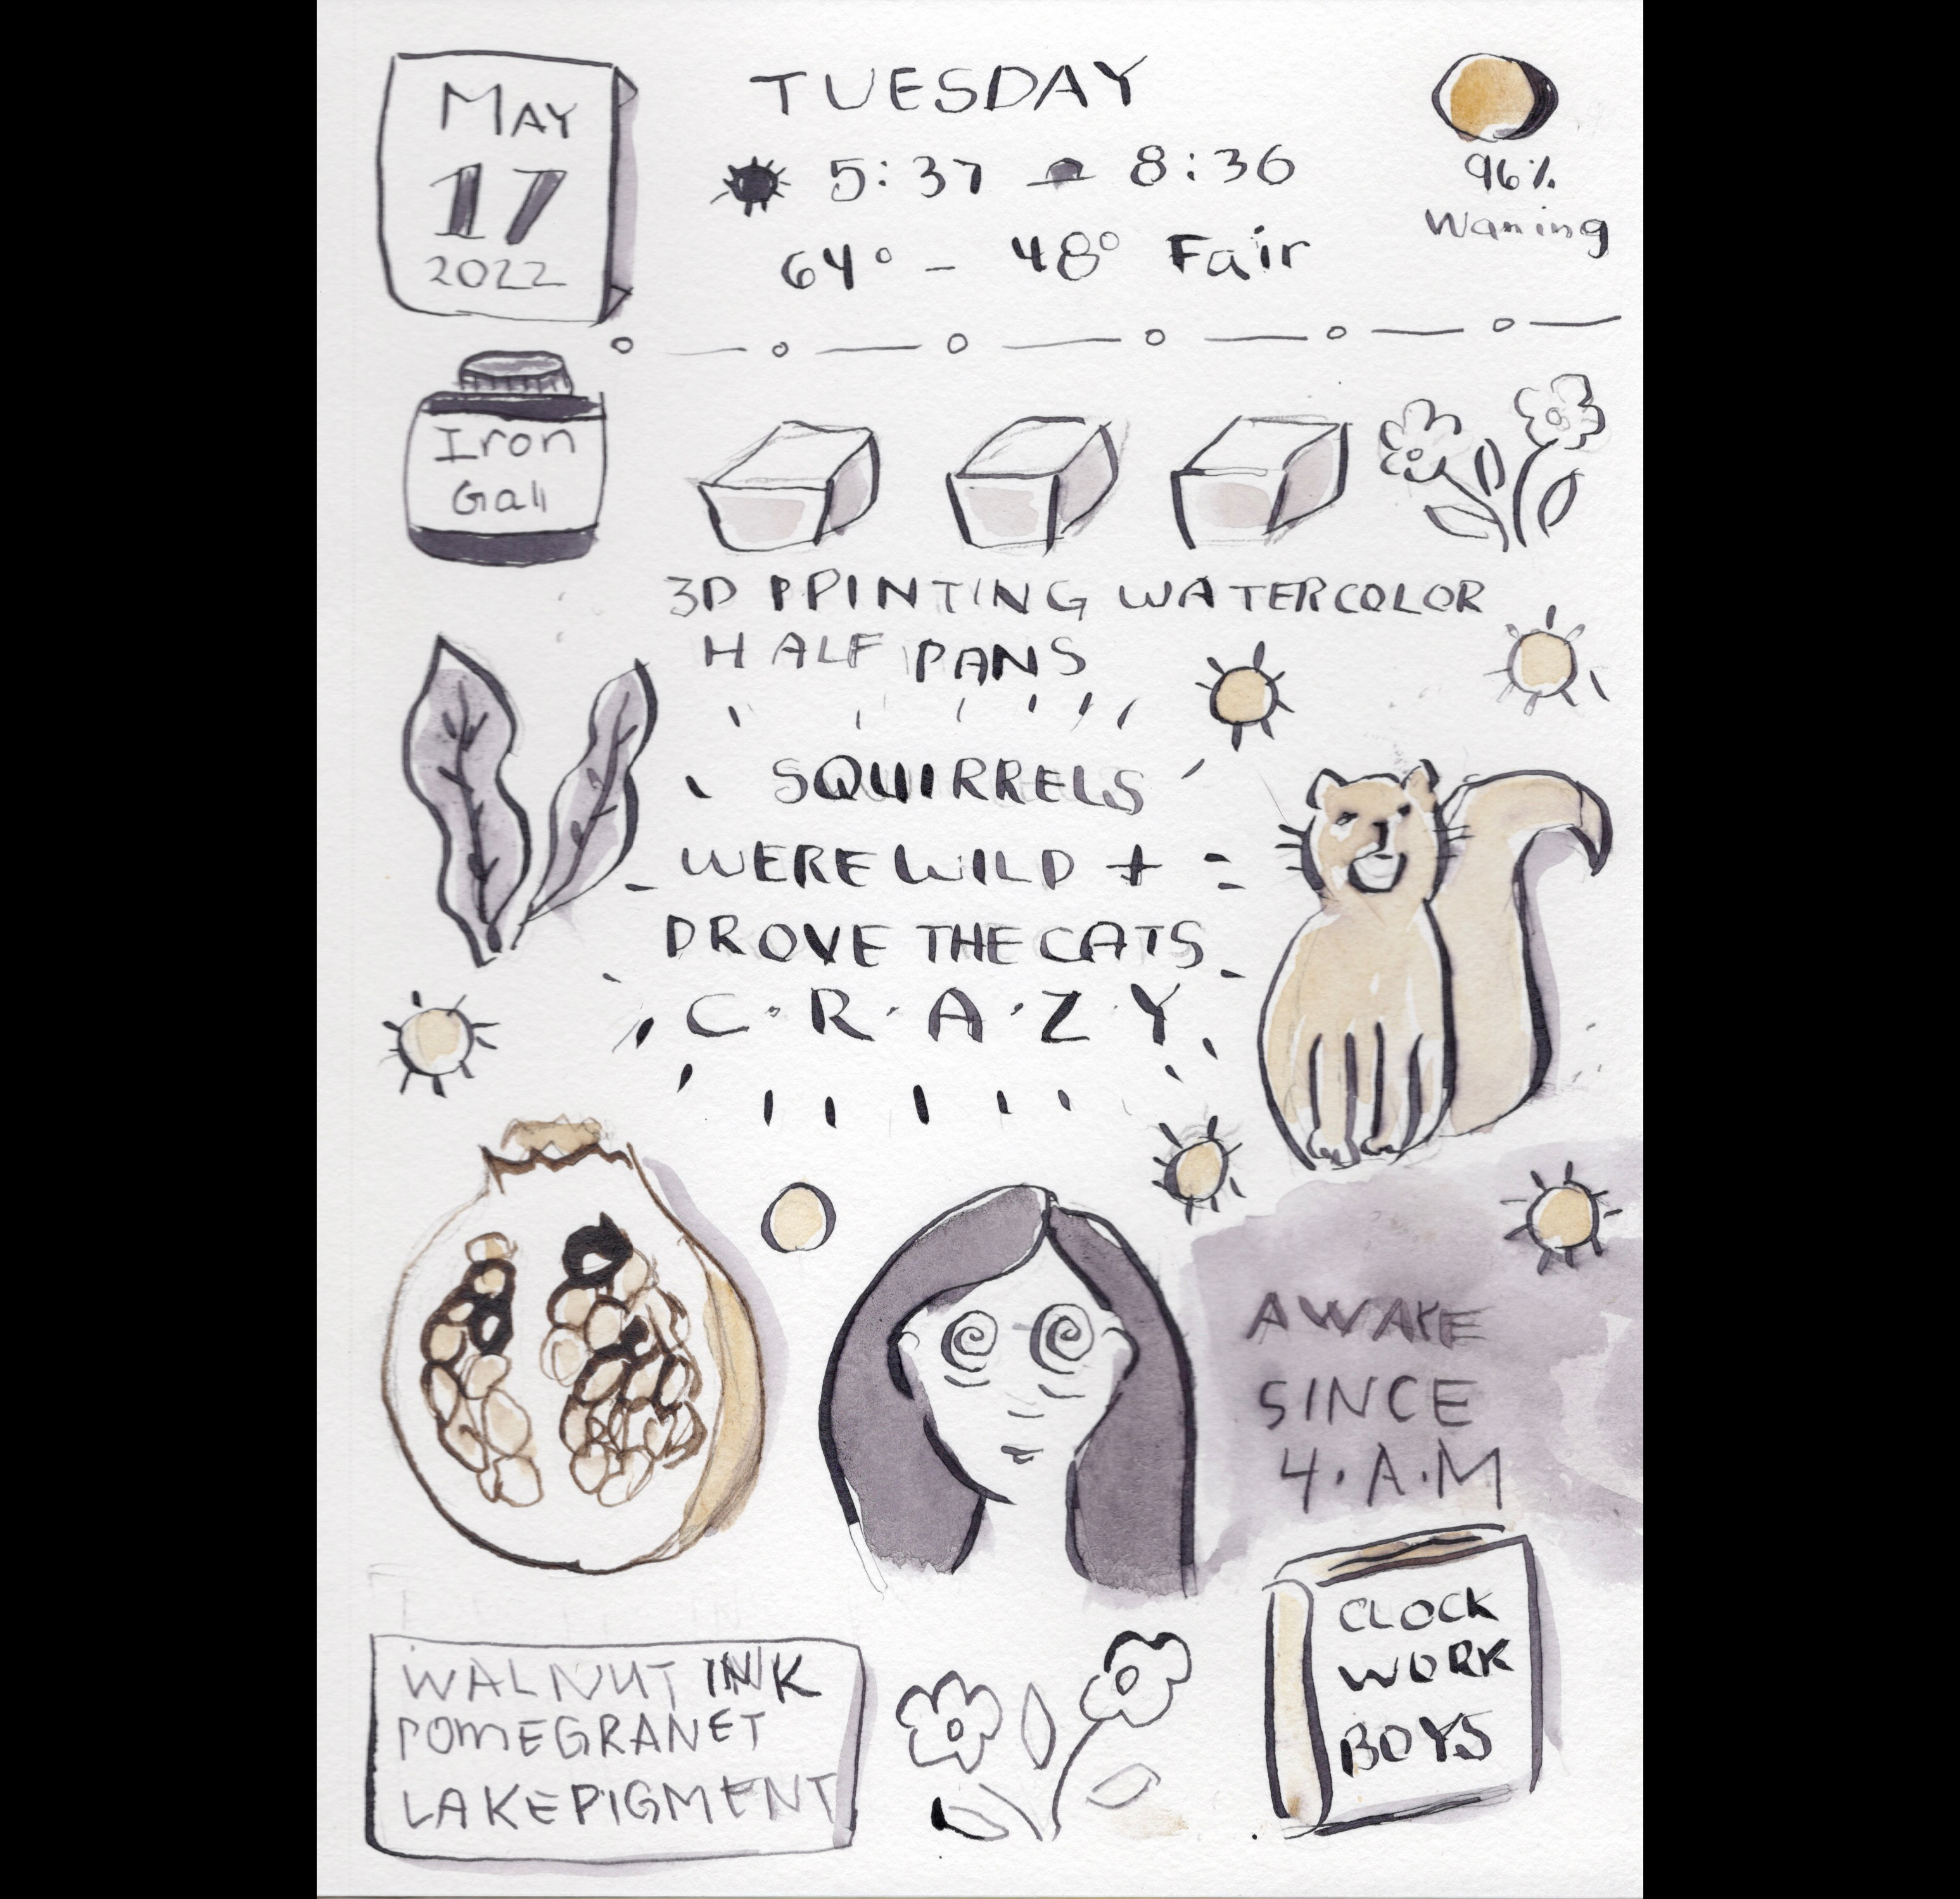 MAY
17
2022
TUESDAY
5:37 8:36
64° - 48° Fair
96%
Waning
Iron
Gall
3D PPINTING WATERCOLOR
HALF PANS
SQUIRRELS
WERE WILD +
DROVE THE CATS
C·R·A·Z·Y
AWAKE
SINCE
4·A·M
CLOCK
WORK
BOYS
WALNUT INK
POMEGRANET
LAKE PIGMENT